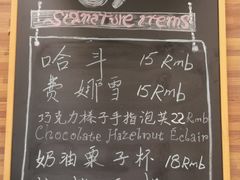 Signature items
哈斗 15 Rmb
费娜雪 15 Rmb
巧克力榛子手指泡芙 22 Rmb
Chocolate Hazelnut Eclair
奶油栗子杯 18 Rmb